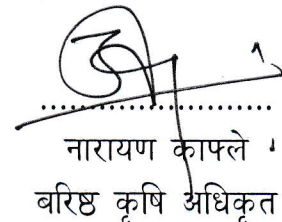 नारायण काफ्ले
बरिष्ठ कृषि अधिकृत